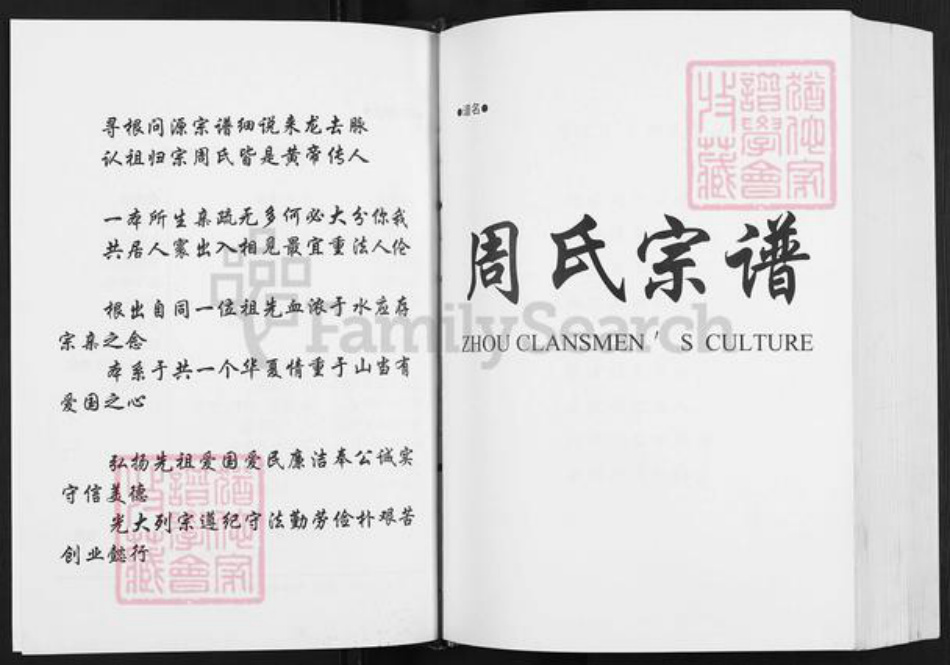 寻根问源宗谱细说来龙去脉
认祖归宗周氏皆是黄帝传人
一本所生亲疏无多何必大分你我
共居人寰出入相见最宜重法人伦
根出自同一位祖先血浓于水应存
宗亲之念
本系于共一个华夏情重于山当有
爱国之心
弘扬先祖爱国爱民廉洁奉公诚实
守信美德
光大列宗遵纪守法勤劳俭朴艰苦
创业懿行
猶他家
譜學會
收藏
FamilySearch
●谱名●
猶他家
譜學會
收藏
周氏宗谱
ZHOU CLANSMEN ' S CULTURE